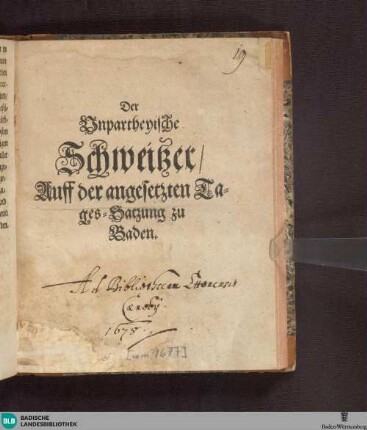 19
Der
Vnpartheyische
Schweitzer/
Auff der angesetzten Ta-
ges-Satzung zu
Baden.
Ad Bibliothecam Ettonensis
Cænobÿ
1678.
[um 1677]
BLB
BADISCHE
LANDESBIBLIOTHEK
Baden-Württemberg